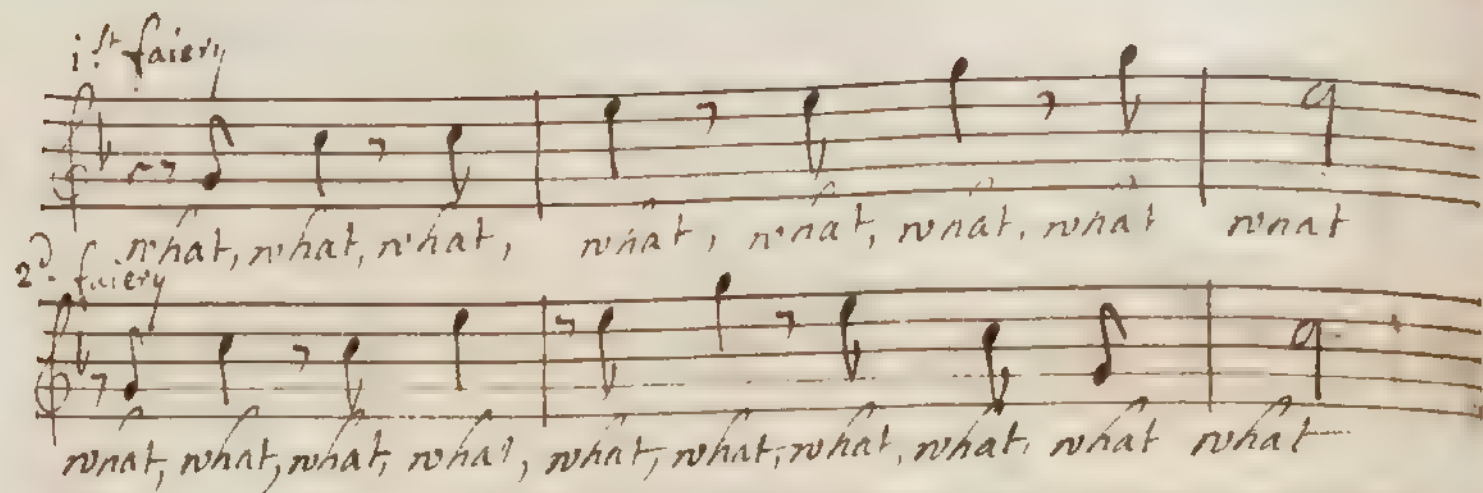 1st faiery
what, what, what, what, what, what, what what
2d. faiery
what, what, what, what, what, what, what, what, what what